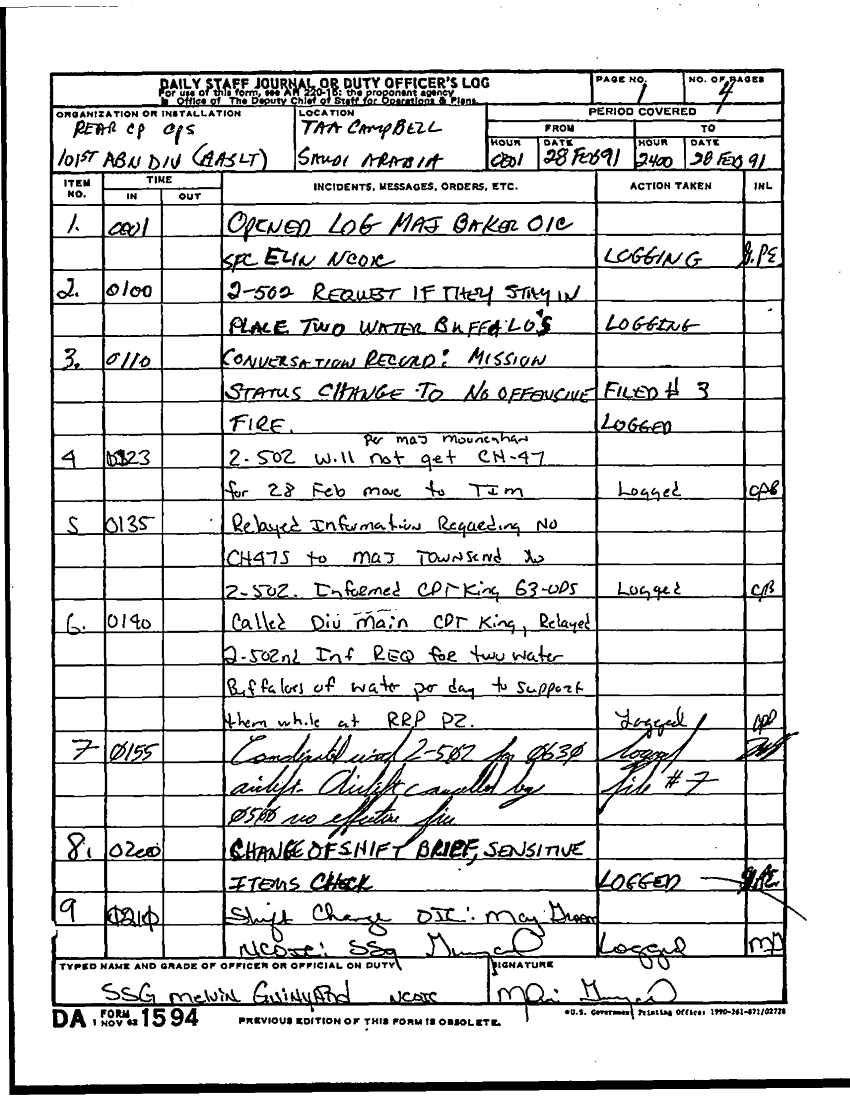 DAILY STAFF JOURNAL OR DUTY OFFICER'S LOG
For use of this form, see AR 220-15; the proponent agency
is Office of The Deputy Chief of Staff for Operations & Plans.
PAGE NO.
1
NO. OF PAGES
4
ORGANIZATION OR INSTALLATION
REAR CP OPS
101ST ABN DIV (AASLT)
LOCATION
TAA CAMPBELL
SAUDI ARABIA
PERIOD COVERED
FROM TO
HOUR DATE HOUR DATE
0001 28 FEB 91 2400 28 FEB 91
ITEM NO. TIME IN OUT INCIDENTS, MESSAGES, ORDERS, ETC. ACTION TAKEN INL
1. 0001 OPENED LOG MAJ BAKER OIC
SFC ELIN NCOIC LOGGING
2. 0100 2-502 REQUEST IF THEY STAY IN
PLACE TWO WATER BUFFALO'S LOGGING
3. 0110 CONVERSATION RECORD: MISSION
STATUS CHANGE TO NO OFFENSIVE FILED # 3
FIRE. LOGGED
Per MAJ
4 0123 2-502 will not get CH-47
for 28 Feb move to TIM Logged
5 0135 Relayed Information Regarding No
CH47S to MAJ TOWNSEND
2-502. Informed CPT King G3-OPS Logged
6. 0140 Called Div Main CPT King, Relayed
2-502nd Inf REQ for two water
Buffalors of water per day to support
them while at RRP PZ. Logged
7 Ø155 Coordinated 2-502 for Ø63Ø
airlift. Airlift cancelled by file # 7
Ø5ØØ no fire
8. 0200 CHANGE OF SHIFT BRIEF, SENSITIVE
ITEMS CHECK LOGGED
9 Ø21Ø Shift Change OIC:
NCOIC: SSG Logged
TYPED NAME AND GRADE OF OFFICER OR OFFICIAL ON DUTY
SSG MELVIN GUINYARD NCOIC
SIGNATURE
DA FORM 1 NOV 62 1594
PREVIOUS EDITION OF THIS FORM IS OBSOLETE.
U.S. Government Printing Office: 1990-261-871/02728